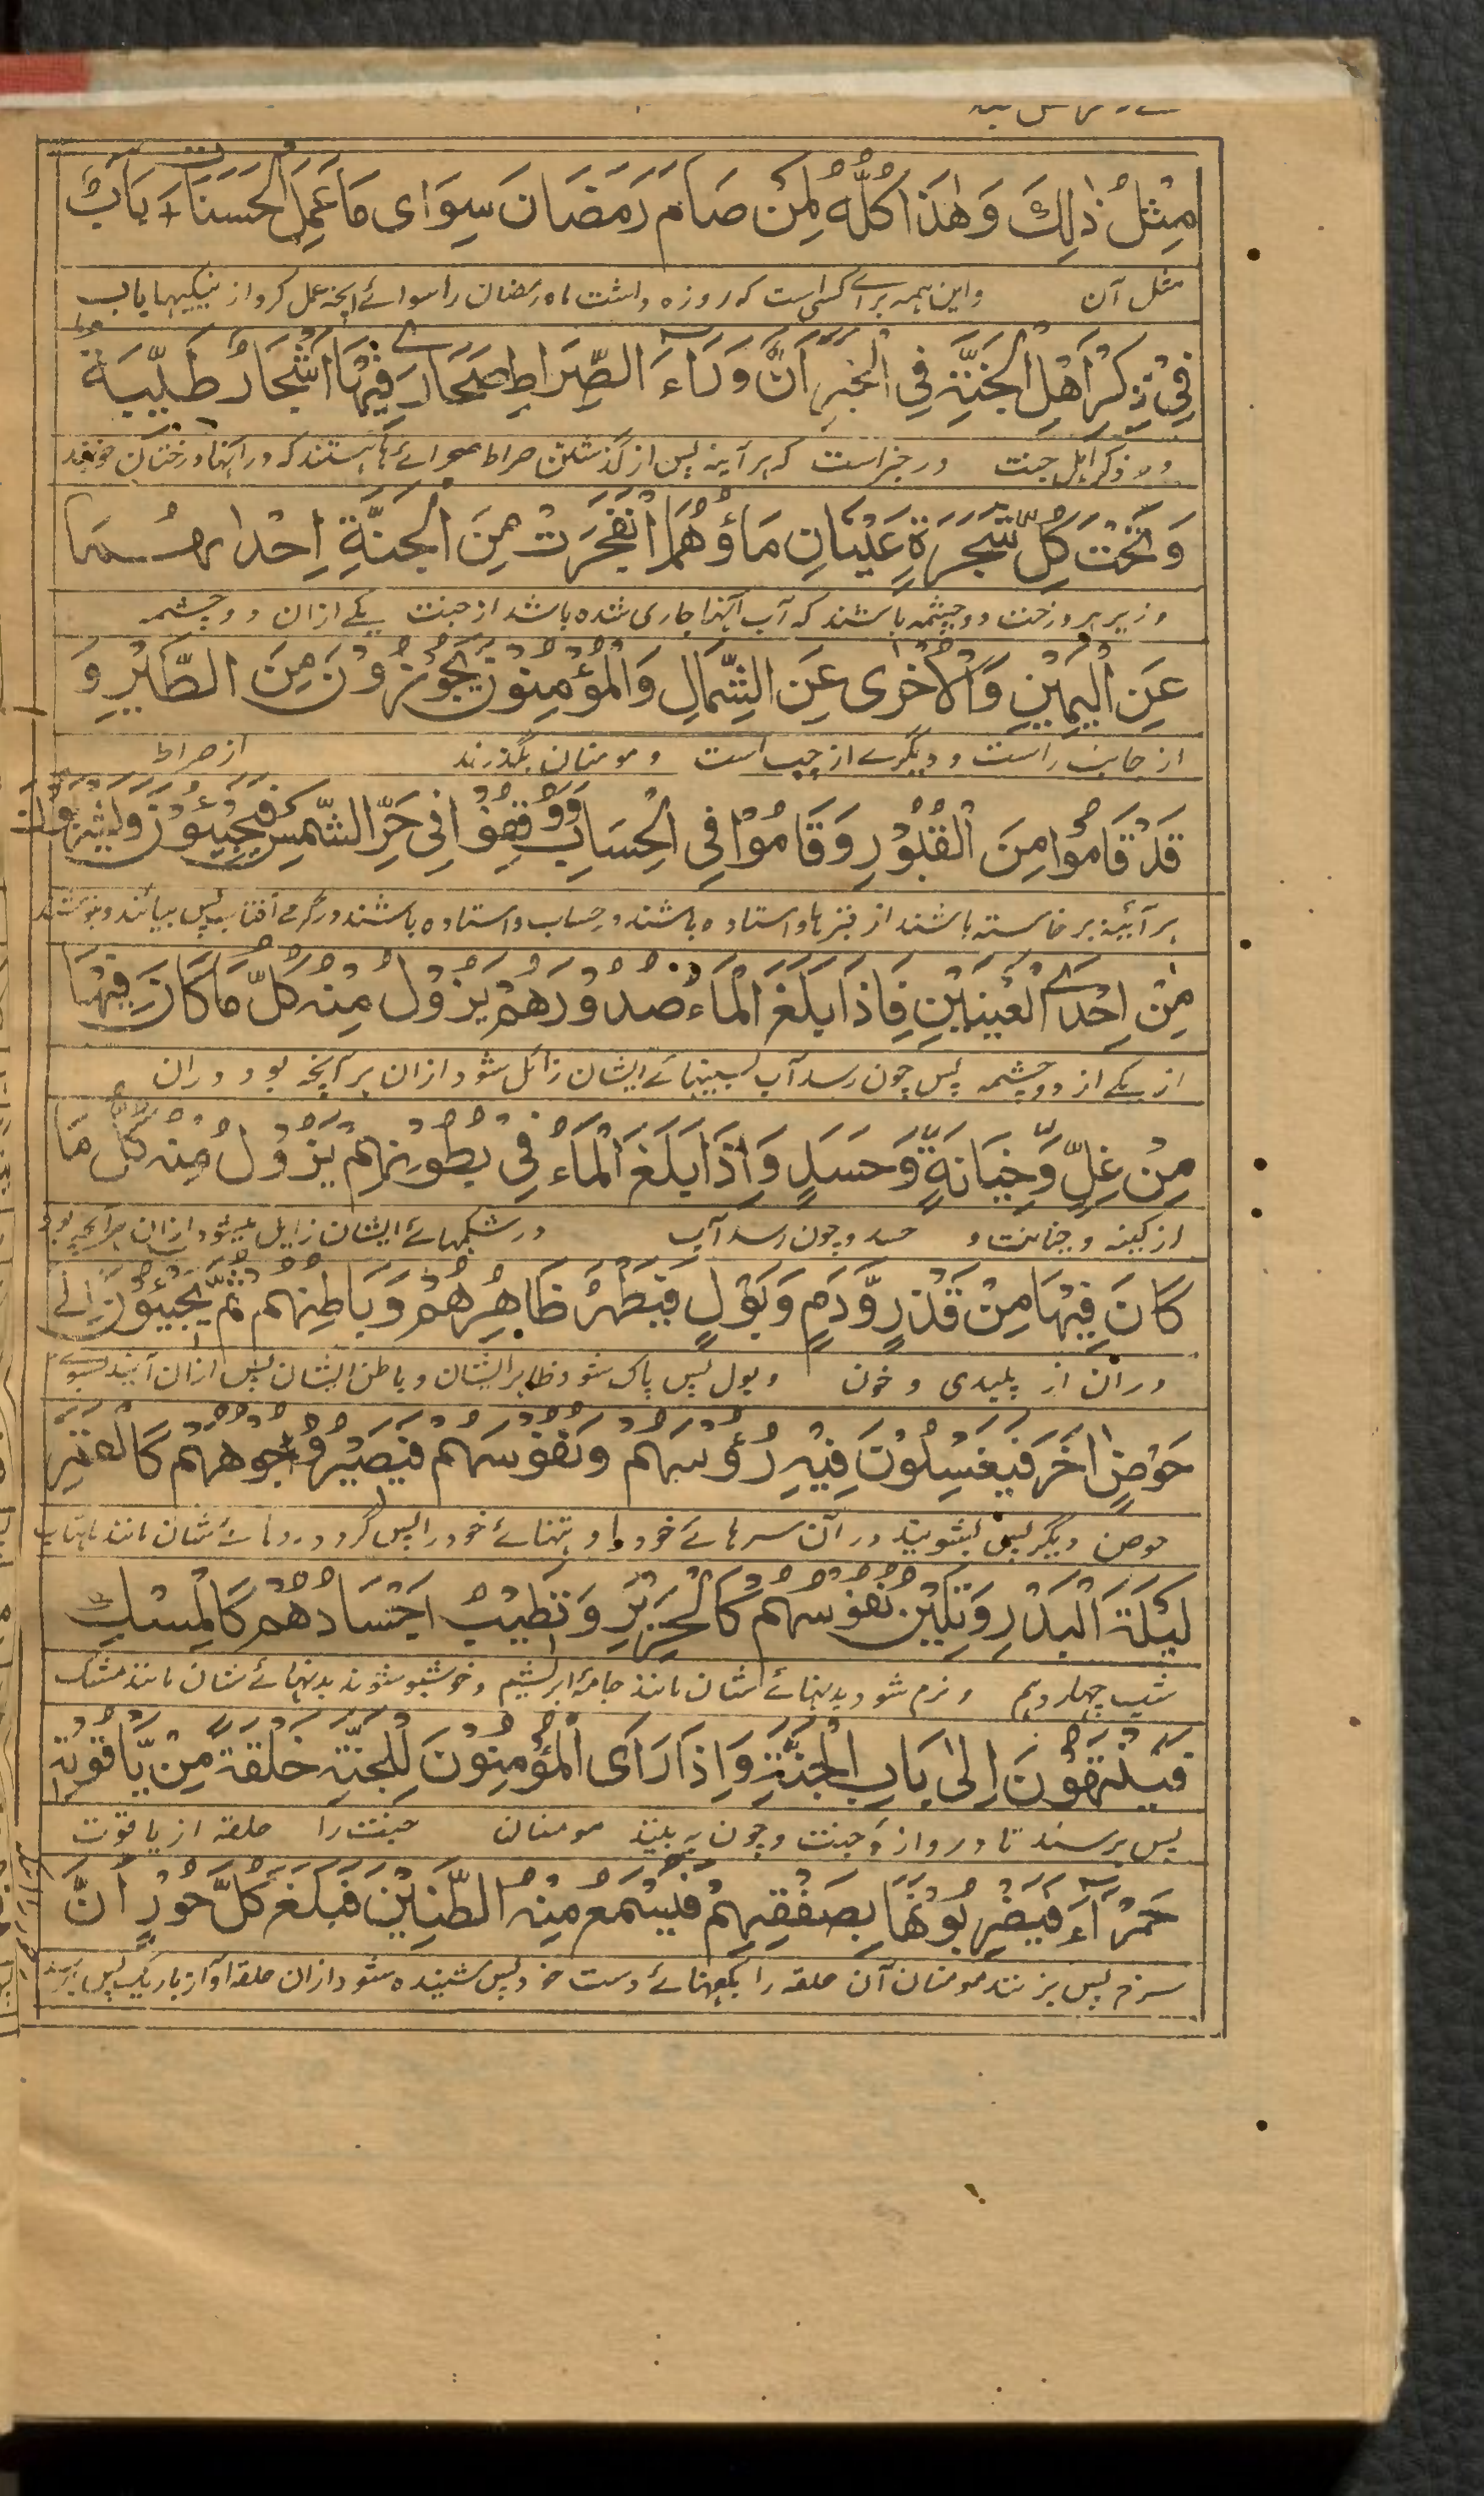 مِثْلُ ذٰلِكَ وَهٰذَا كُلُّهُ لِمَنْ صَامَ رَمَضَانَ سِوَاى مَا عَمِلَ الْحَسَنَات بَابٌ
مثل آن واین همه برائے کسی است که روزه داشت ماه رمضان را سوائے آنچه عمل کرد از نیکیها باب
فِيْ ذِكْرِ اَهْلِ الْجَنَّةِ فِي الْخَبَرِ اَنَّ وَرَاءَ الصِّرَاطِ صَحَارٰے فِيْهَا اَشْجَارٌ طَيِّبَةٌ
در ذکر اہل جنت در خبر است که ہر آینه پس از گذشتن صراط صحرائے ها ہستند که در آنہا درختان
وَتَحْتَ كُلِّ شَجَرَةٍ عَيْنَانِ مَاؤُهُمَا انْفَجَرَتْ مِنَ الْجَنَّةِ اِحْدٰىهُمَا
وزیر ہر درخت دو چشمه باشند که آب آنہا جاری شده باشد از جنت یکے ازان دو چشمه
عَنِ الْيَمِيْنِ وَالْاُخْرٰى عَنِ الشِّمَالِ وَالْمُؤْمِنُوْنَ يَجُوْزُوْنَ مِنَ الطَّايِرِ وَ
از جانب راست و دیگرے از چپ است و مومنان بگذرند از صراط
قَدْ قَامُوْا مِنَ الْقُبُوْرِ وَقَامُوْا فِي الْحِسَابِ وَوُقِفُوْا فِي حَرِّ الشَّمْسِ فَيَجِيْئُوْنَ وَيَشْرَبُوْنَ
ہر آئینه برخاسته باشند از قبرہا و استاده باشند در حساب و استاده باشند در گرمی آفتاب پس بیائند و بنوشند
مِنْ اِحْدَے الْعَيْنَيْنِ فَاِذَا بَلَغَ الْمَاءُ صُدُوْرَهُمْ يَزُوْلُ مِنْهُ كُلُّ مَا كَانَ فِيْهَا
از یکے از دو چشمه پس چون رسد آب بسینہائے ایشان زائل شود ازان ہر آنچه بود دران
مِنْ غِلٍّ وَّخِيَانَةٍ وَّحَسَدٍ وَاِذَا بَلَغَ الْمَاءُ فِيْ بُطُوْنِهِمْ يَزُوْلُ مِنْهُ كُلُّ مَا
از کینه و خیانت و حسد و چون رسد آب در شکمہائے ایشان زایل میشود ازان ہر آنچه بود
كَانَ فِيْهَا مِنْ قَذَرٍ وَّدَمٍ وَبَوْلٍ فَيَطْهُرُ ظَاهِرُهُمْ وَبَاطِنُهُمْ ثُمَّ يَجِيْئُوْنَ اِلٰى
دران از پلیدی و خون و بول پس پاک شود ظاہر ایشان و باطن ایشان پس ازان آیند بسوئے
حَوْضٍ اٰخَرَ فَيَغْسِلُوْنَ فِيْهِ رُؤُسَهُمْ وَنُفُوْسَهُمْ فَيَصِيْرُ وُجُوْهُهُمْ كَالْقَمَرِ
حوض دیگر پس بشویند در آن سرہائے خود را و تنہائے خود را پس گردد روہائے شان مانند ماہتاب
لَيْلَةَ الْبَدْرِ وَتَلِيْنُ نُفُوْسُهُمْ كَالْحَرِيْرِ وَتَطِيْبُ اَجْسَادُهُمْ كَالْمِسْكِ
شب چہاردہم و نرم شود بدنہائے شان مانند جامۂ ابریشم و خوشبو شوند بدنہائے شان مانند مشک
فَيَنْتَهُوْنَ اِلٰى بَابِ الْجَنَّةِ وَاِذَا رَاَى الْمُؤْمِنُوْنَ لِلْجَنَّةِ حَلْقَةً مِّنْ يَّاقُوْتَةٍ
پس برسند تا دروازۂ جنت و چون به بینند مومنان جنت را حلقه از یاقوت
حَمْرَآءَ فَيَضْرِبُوْنَهَا بِصَفْقِهِمْ فَيُسْمَعُ مِنْهُ الطَّنِيْنُ فَبَلَغَ كُلَّ حُوْرٍ اَنَّ
سرخ پس بزنند مومنان آن حلقه را بکفہائے دست خود پس شنیده شود ازان حلقه آواز باریک پس برسد